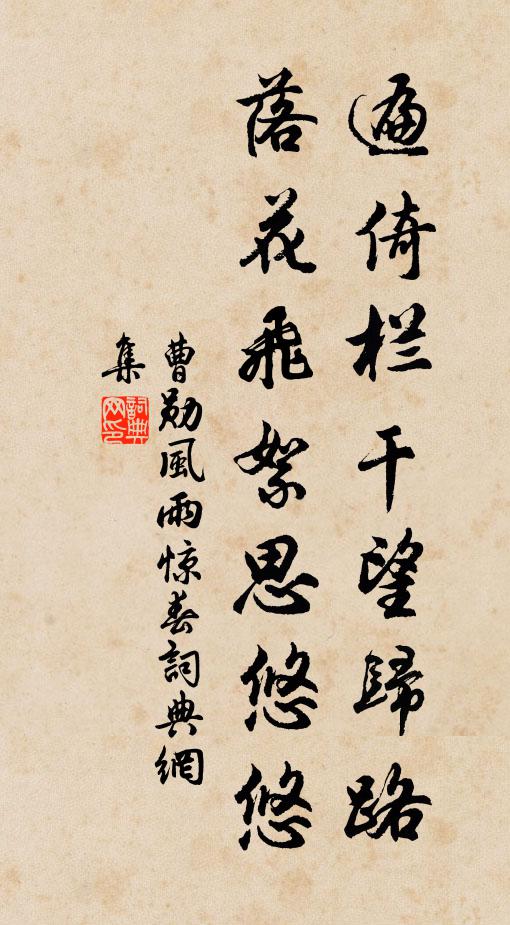 遍倚栏干望歸路
落花飛絮思悠悠
曹勛風雨惊春詞典網
集
詞典网印